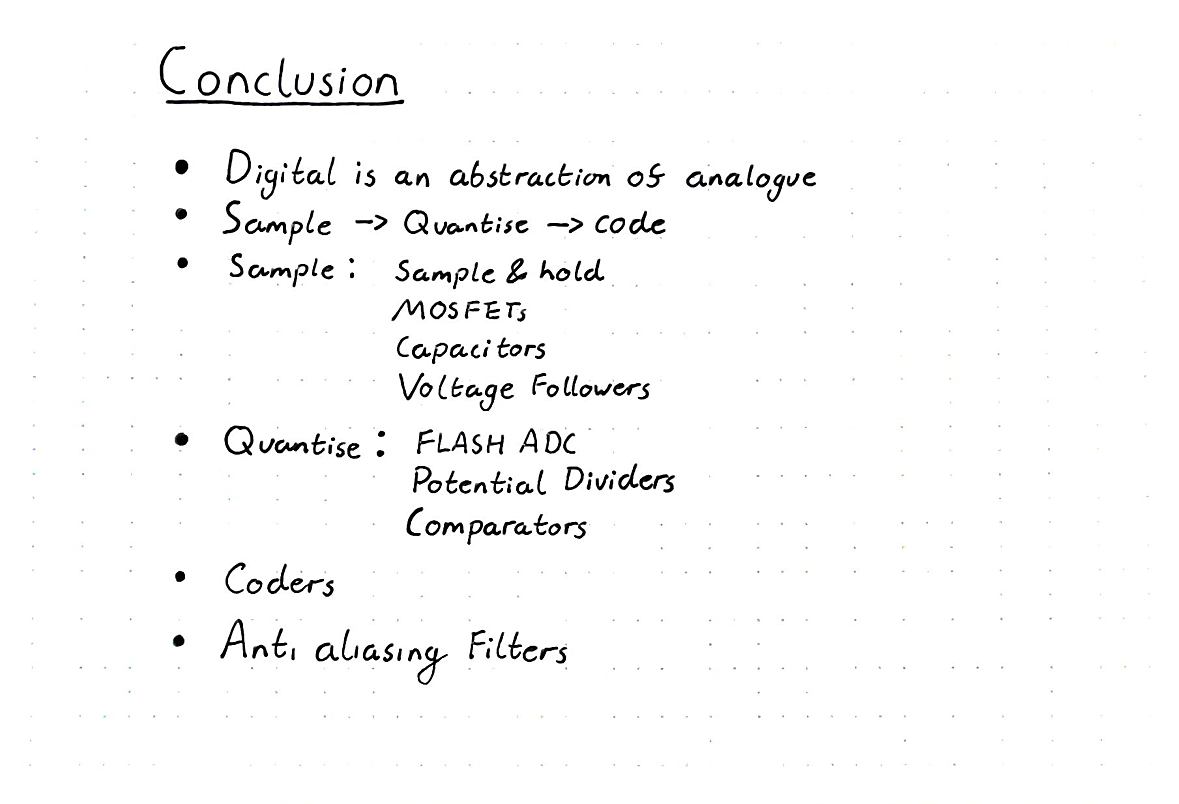 Conclusion
• Digital is an abstraction of analogue
• Sample -> Quantise -> code
• Sample: Sample & hold
MOSFETs
Capacitors
Voltage Followers
• Quantise: FLASH ADC
Potential Dividers
Comparators
• Coders
• Anti aliasing Filters